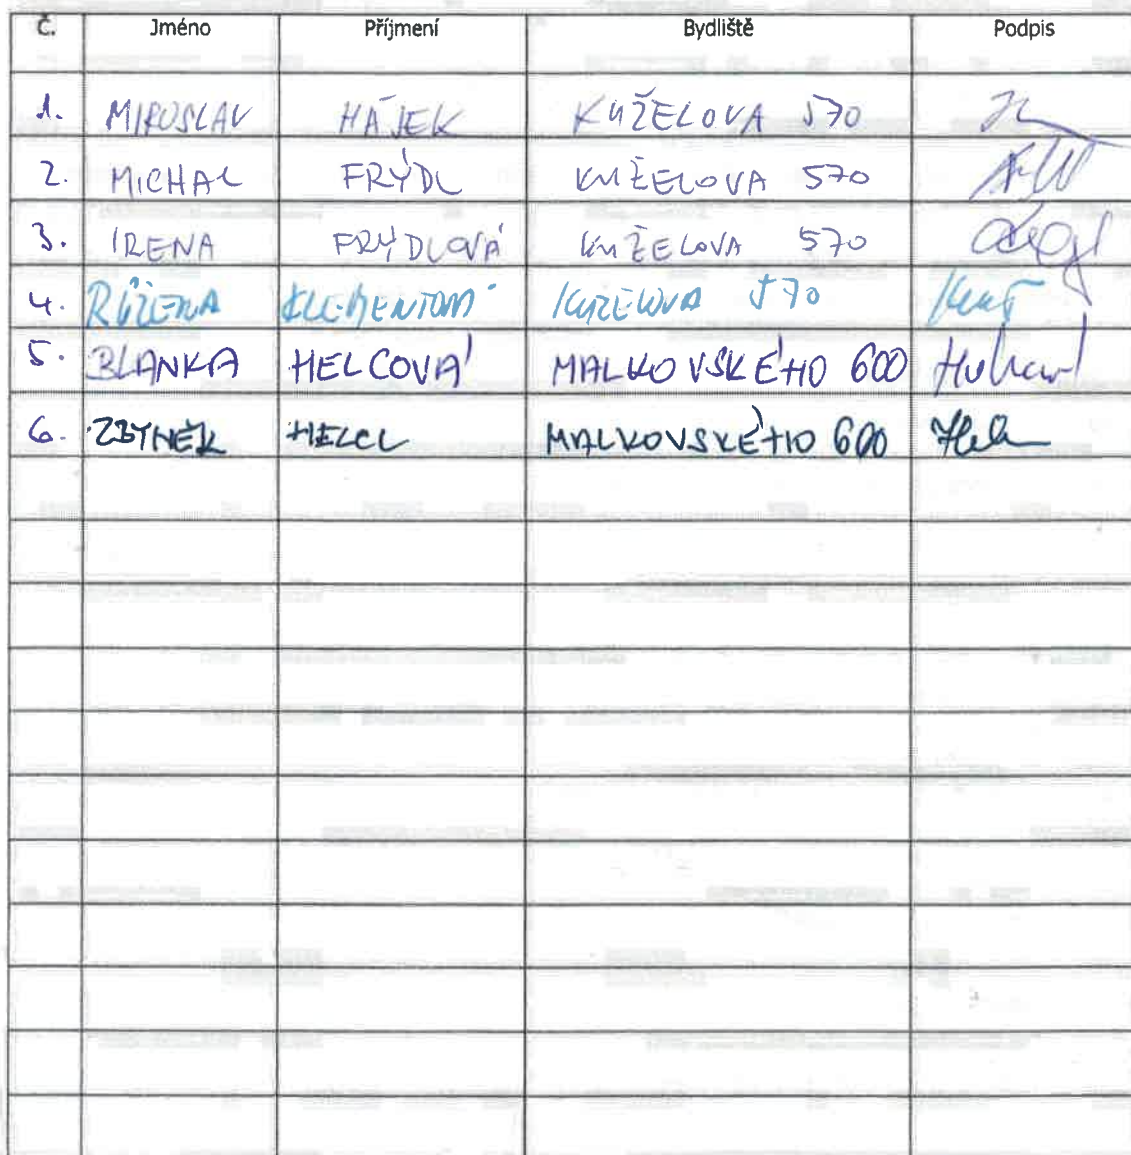 Č. Jméno Příjmení Bydliště Podpis
1. MIROSLAV HÁJEK KUŽELOVA 570
2. MICHAL FRÝDL KUŽELOVA 570
3. IRENA FRÝDLOVÁ KUŽELOVA 570
4. RŮŽENA KUŽELOVA 570
5. BLANKA HELCOVÁ MALKOVSKÉHO 600
6. ZBYNĚK HELCL MALKOVSKÉHO 600